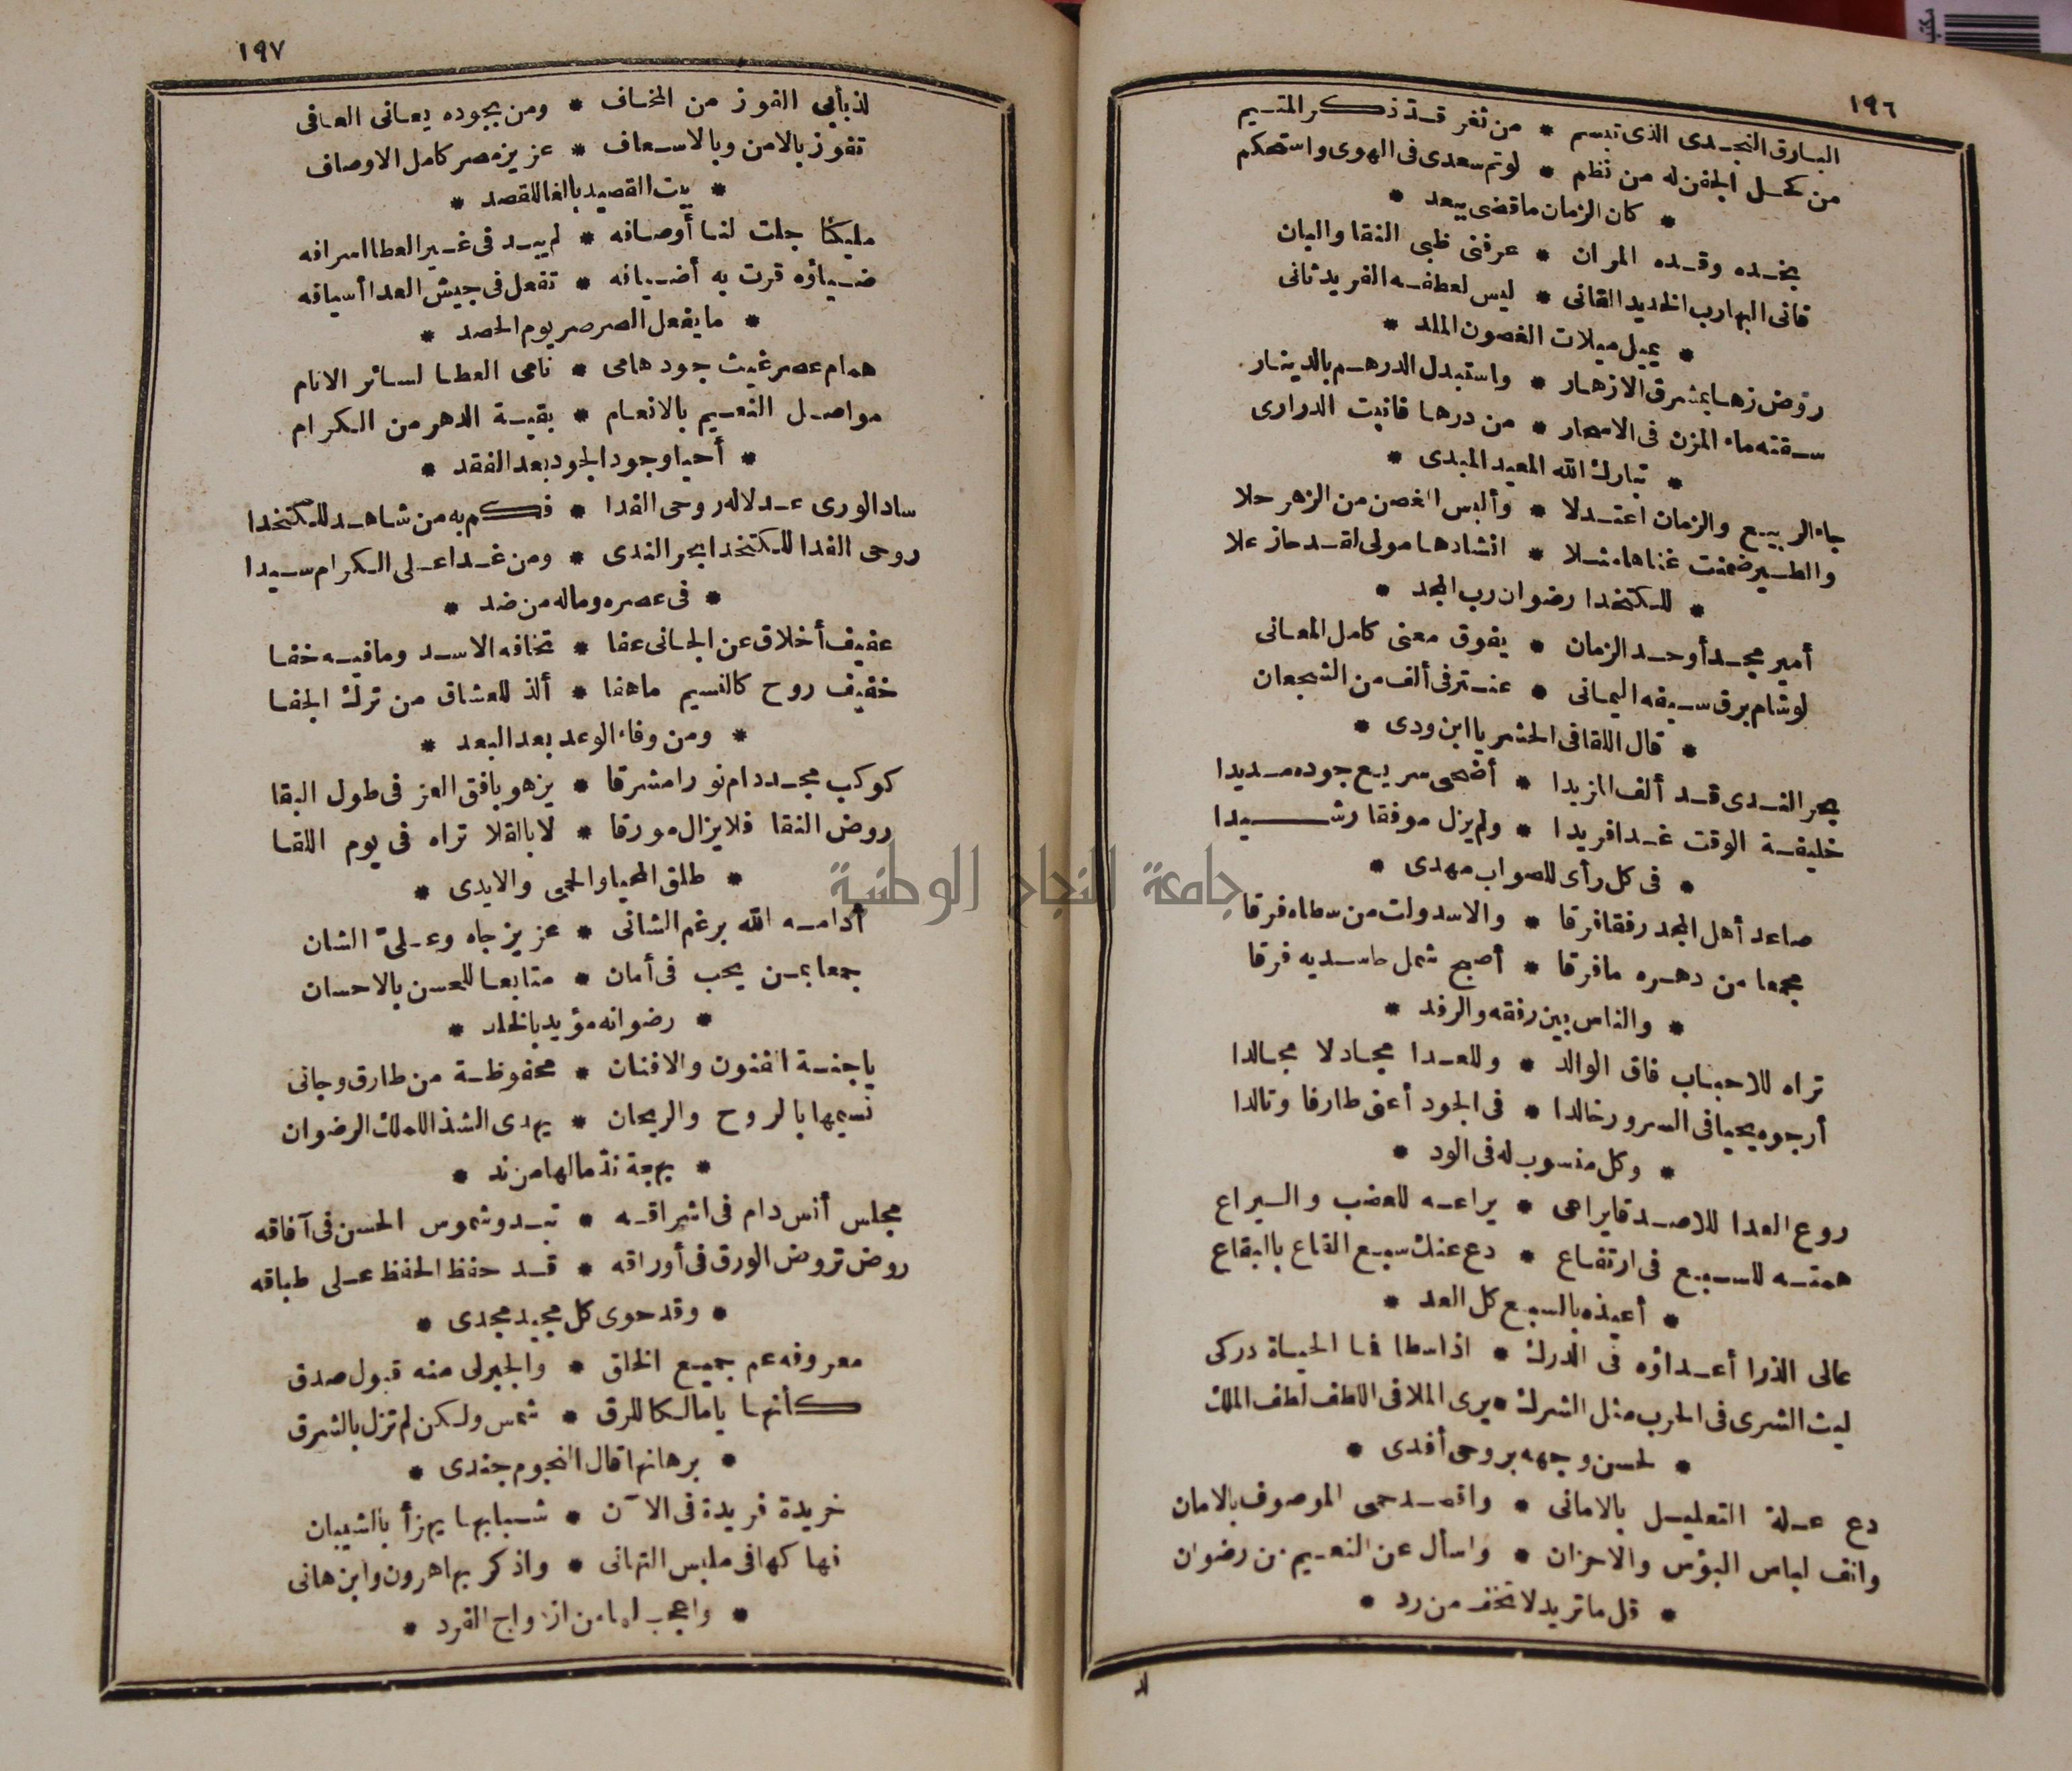 ١٩٦
البارق النجدى الذى تبسم * من ثغر قد ذكر المتيم
من كحل الجفن له من نظم * لو تم سعدى فى الهوى واستحكم
* كان الزمان ما قضى ببعد *
بخده وقده المران * عرفنى ظبى النقا والبان
قانى البها رب الخديد القانى * ليس لعطفه الفريد ثانى
* يميل ميلات الغصون الملد *
روض زها بمشرق الازهار * واستبدل الدرهم بالدينار
سقته ماء المزن فى الاسحار * من درها قانيت الدرارى
* تبارك الله المعيد المبدى *
جاء الربيع والزمان اعتدلا * وألبس الغصن من الزهر حلا
والطير ضمنت غناها مثلا * انشادها مولى لقد حاز علا
* للكتخدا رضوان رب المجد *
أمير مجد أوحد الزمان * يفوق معنى كامل المعانى
لو شام برق سيفه اليمانى * عنتر فى ألف من الشجعان
* قال اللقا فى الحشر يا ابن ودى *
بحر الندى قد ألف المزيدا * أضحى سريع جوده مديدا
خليفة الوقت غدا فريدا * ولم يزل موفقا رشيدا
* فى كل رأى للصواب مهدى *
صاعد أهل المجد رفقا فرقا * والاسد ولت من سطاه فرقا
مجمعا من دهره ما فرقا * أصبح شمل حاسديه فرقا
* والناس بين رفقه والرفد *
تراه للاحباب فاق الوالد * وللعدا مجادلا مجالدا
أرجوه يحيا فى السرور خالدا * فى الجود أعنى طارفا وتالدا
* وكل منسوب له فى الود *
روع العدا للاصدقا يراعى * يراعه للعضب واليراع
همته للسبع فى ارتفاع * دع عنك سبع القاع بالبقاع
* أعيذه بالسبع كل العد *
عالى الذرا أعداؤه فى الدرك * اذا سطا فما الحياة دركى
ليث الشرى فى الحرب مثل الشرك * يرى الملا فى اللطف لطف الملك
* لحسن وجهه بروحى أفدى *
دع علة التعليل بالامانى * واقصد حمى الموصوف بالامان
وانف لباس البؤس والاحزان * واسأل عن النعيم من رضوان
* قل ما تريد لا تخف من رد *
لذ
١٩٧
لذ بأبى الفوز من المخاف * ومن بجوده يعانى العافى
تفوز بالامن وبالاسعاف * عزيز مصر كامل الاوصاف
* بيت القصيد بالغا للقصد *
مليكنا جلت لنا أوصافه * لم يبد فى غير العطا اسرافه
ضياؤه قرت به أضيافه * تفعل فى جيش العدا أسيافه
* ما يفعل الصرصر يوم الحصد *
همام عصر غيث جود هامى * نامى العطا لسائر الانام
مواصل النعيم بالانعام * بقية الدهر من الكرام
* أحيا وجود الجود بعد الفقد *
ساد الورى عدلا له روحى الفدا * فكم به من شاهد للكتخدا
روحى الفدا للكتخدا بحر الندى * ومن غدا على الكرام سيدا
* فى عصره وماله من ضد *
عفيف أخلاق عن الجانى عفا * تخافه الاسد وما فيه خفا
خفيف روح كالنسيم ما هفا * ألذ للعشاق من ترك الجفا
* ومن وفاء الوعد بعد البعد *
كوكب مجد دام نورا مشرقا * يزهو بافق العز فى طول البقا
روض النقا فلا يزال مورقا * لا بالقلا تراه فى يوم اللقا
* طلق المحيا والحمى والايدى *
أدامه الله برغم الشانى * عزيز جاه وعلىّ الشان
جمعا بمن يحب فى أمان * متابعا للحسن بالاحسان
* رضوانه مؤيد بالخلد *
يا جنة الفنون والافنان * محفوظة من طارق وجانى
نسيمها بالروح والريحان * يهدى الشذا للملك الرضوان
* بهجة ند ما لها من ند *
مجلس أنس دام فى اشراقه * تبدو شموس الحسن فى آفاقه
روض تروض الورق فى أوراقه * قد حفظ الحفظ على طباقه
* وقد حوى كل مجيد مجدى *
معروفه عم جميع الخلق * والجبر لى منه قبول صدق
كأنها يا مالكا للرق * شمس ولكن لم تزل بالشرق
* برهانها قال النجوم جندى *
خريدة فريدة فى الآن * شبابها يهزأ بالشيبان
فهاكها فى ملبس التهانى * واذكر بها هرون وابن هانى
* واعجب لها من ازدواج الفرد *
جامعة النجاح الوطنية